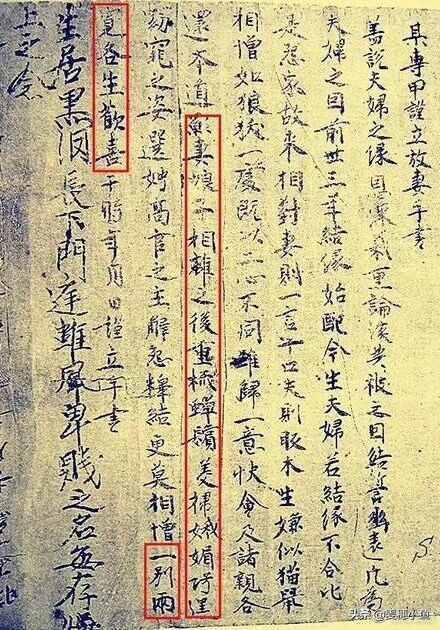 某專甲謹立放妻手書
蓋說夫婦之緣恩深義重論談共被之因結誓幽遠凡為
夫婦之因前世三年結緣始配今生夫婦若結緣不合比
是怨家故來相對妻則一言十口夫則販木生嫌似猫鼠
相憎如狼一處既以二心不同難歸一意快會及諸親各
還本道願妻娘子相離之後重梳蟬鬢美掃娥媚巧逞
窈窕之姿選娉高官之主解怨釋結更莫相憎一別兩
寬各生歡喜于時年月日謹立手書
生居黒長下門逢離風卑賤之名無存
上之念
S.
头条